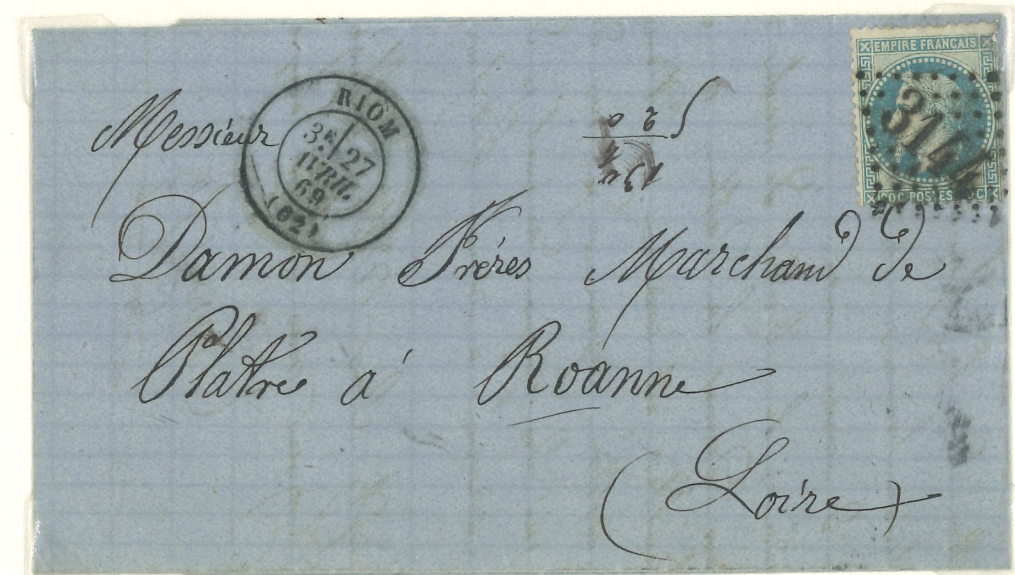 EMPIRE FRANÇAIS
314
POSTES
RIOM
3E
27
AVRIL
69
(62)
Messieur
Damon Frères Marchand de
Platre à Roanne
(Loire)